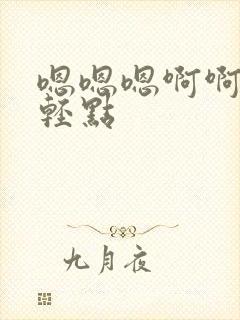 嗯嗯嗯啊啊
輕點
九月夜